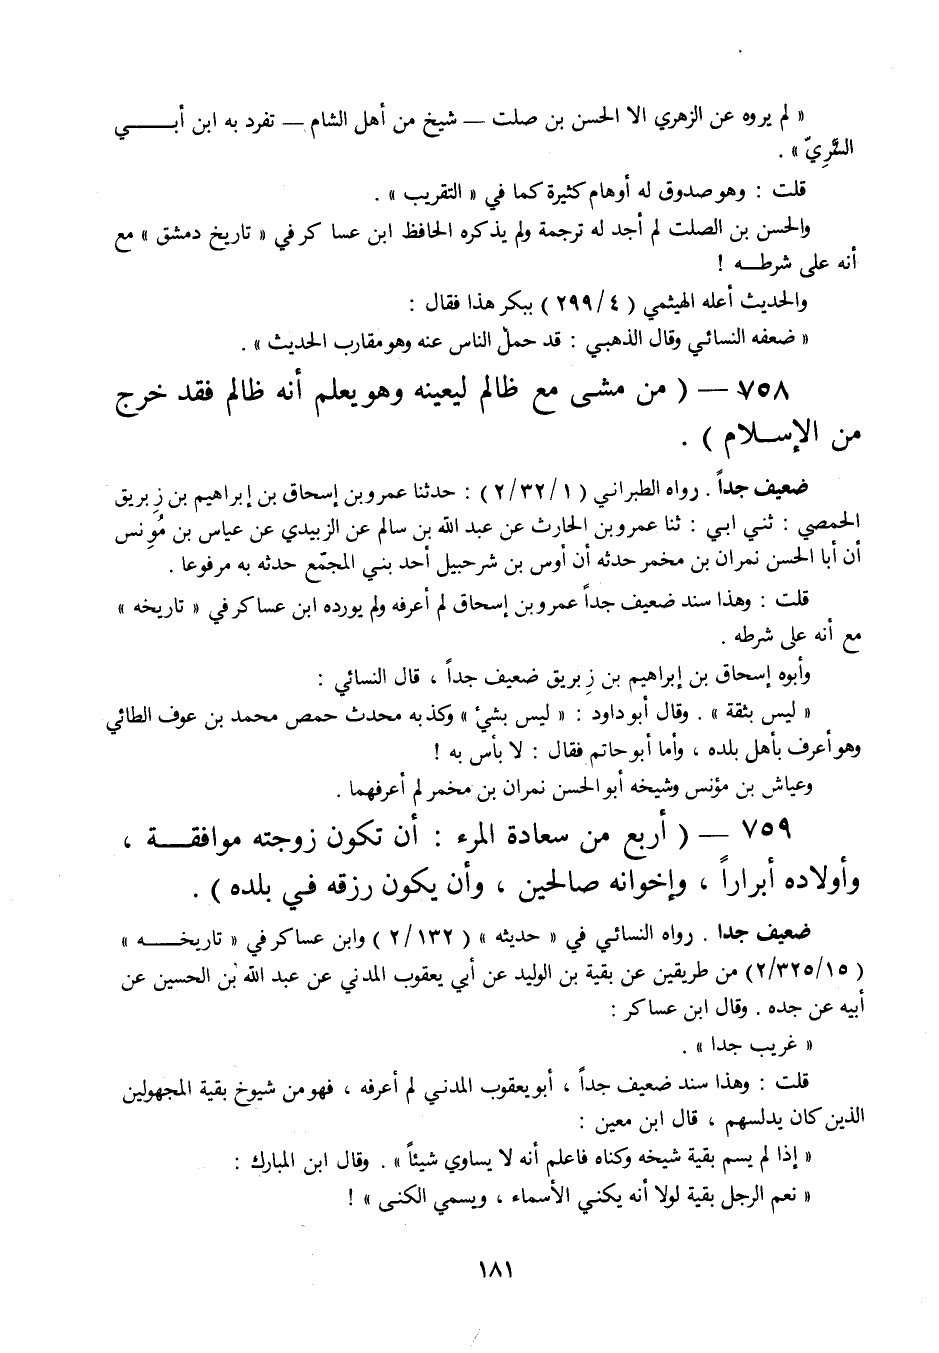 « لم يروه عن الزهري الا الحسن بن صلت — شيخ من أهل الشام — تفرد به ابن أبـــــي
السَّرِيّ » .
قلت : وهو صدوق له أوهام كثيرة كما في « التقريب » .
والحسن بن الصلت لم أجد له ترجمة ولم يذكره الحافظ ابن عساكر في « تاريخ دمشق » مع
أنه على شرطـــه !
والحديث أعله الهيثمي ( ٤/٢٩٩ ) ببكر هذا فقال :
« ضعفه النسائي وقال الذهبي : قد حمل الناس عنه وهو مقارب الحديث » .
٧٥٨ — ( من مشى مع ظالم ليعينه وهو يعلم أنه ظالم فقد خرج
من الإســلام ) .
ضعيف جداً . رواه الطبراني ( ١/٣٢/٢ ) : حدثنا عمرو بن إسحاق بن إبراهيم بن زِبريق
الحمصي : ثني ابي : ثنا عمرو بن الحارث عن عبد الله بن سالم عن الزبيدي عن عياس بن مُونِس
أن أبا الحسن نمران بن مخمر حدثه أن أوس بن شرحبيل أحد بني المجمّع حدثه به مرفوعا .
قلت : وهذا سند ضعيف جداً عمرو بن إسحاق لم أعرفه ولم يورده ابن عساكر في « تاريخه »
مع أنه على شرطه .
وأبوه إسحاق بن إبراهيم بن زِبريق ضعيف جداً ، قال النسائي :
« ليس بثقة » . وقال أبو داود : « ليس بشيْ » وكذبه محدث حمص محمد بن عوف الطائي
وهو أعرف بأهل بلده ، وأما أبو حاتم فقال : لا بأس به !
وعياش بن مؤنس وشيخه أبو الحسن نمران بن مخمر لم أعرفهما .
٧٥٩ — ( أربع من سعادة المرء : أن تكون زوجته موافقـــة ،
وأولاده أبراراً ، وإخوانه صالحين ، وأن يكون رزقه في بلده ) .
ضعيف جدا . رواه النسائي في « حديثه » ( ١٣٢/٢ ) وابن عساكر في « تاريخـــه »
( ١٥/٣٢٥/٢) من طريقين عن بقية بن الوليد عن أبي يعقوب المدني عن عبد الله بن الحسين عن
أبيه عن جده . وقال ابن عساكر :
« غريب جدا » .
قلت : وهذا سند ضعيف جداً ، أبو يعقوب المدني لم أعرفه ، فهو من شيوخ بقية المجهولين
الذين كان يدلسهم ، قال ابن معين :
« إذا لم يسم بقية شيخه وكناه فاعلم أنه لا يساوي شيئاً » . وقال ابن المبارك :
« نعم الرجل بقية لولا أنه يكني الأسماء ، ويسمي الكنى » !
١٨١